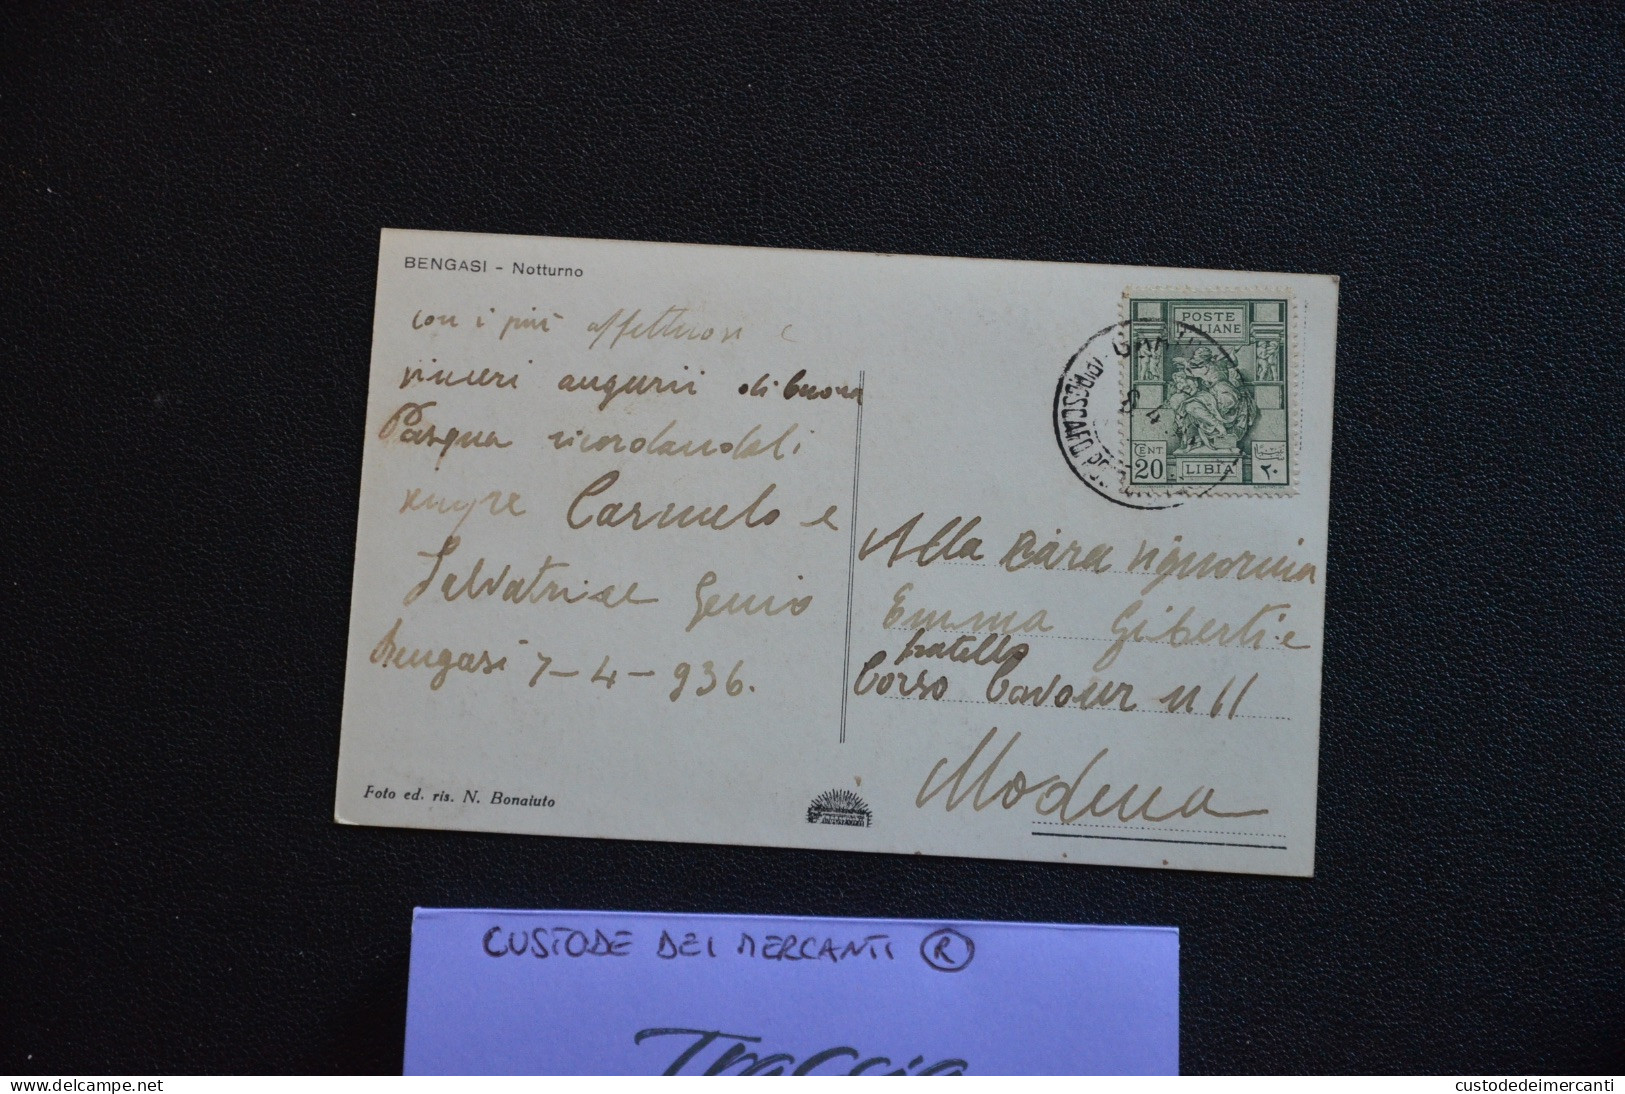 BENGASI - Notturno
con i più affettuosi e
sinceri augurii di buona
Pasqua ricordandoli
sempre Carmelo e
Salvatrice Genio
Bengasi 7-4-936.
Foto ed. ris. N. Bonaiuto
POSTE
ITALIANE
CENT
20
LIBIA
٢٠
Alla cara signorina
Emma Giberti e
fratello
Corso Cavour n 11
Modena
CUSTODE DEI MERCANTI ®
Traccia
delcampe.net
custodedeimercanti